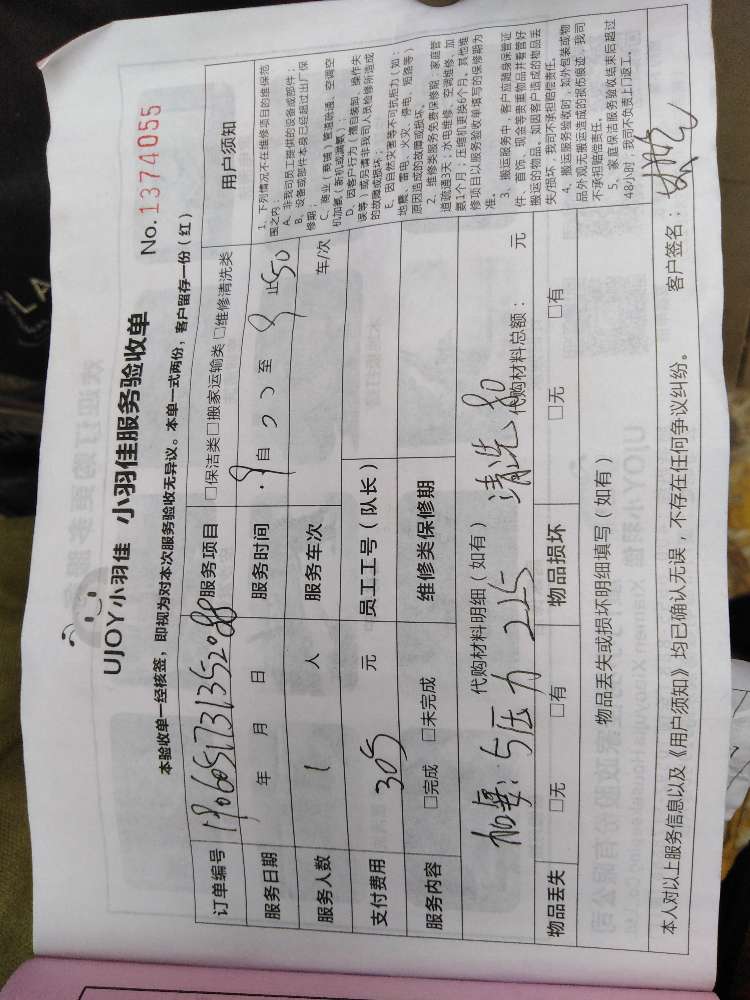 UJOY小羽佳 小羽佳服务验收单
No. 1374055
本验收单一经核签，即视为对本次服务验收无异议。本单一式两份，客户留存一份（红）
订单编号 服务项目 □保洁类□搬家运输类□维修清洗类
服务日期 年 月 日 服务时间 自 至 止50
服务人数 1 人 服务车次 车/次
支付费用 305 元 员工工号（队长）
服务内容 □完成 □未完成 维修类保修期
代购材料明细（如有） 代购材料总额： 元
与压力 215 清洗 90
物品丢失 □无 □有 物品损坏 □无 □有
物品丢失或损坏明细填写（如有）
用户须知
1、下列情况不在维修项目的维保范
围之内：
A、非我司员工提供的设备或部件；
B、设备或部件本身已经超过出厂保
修期；
C、商业（商铺）管道疏通、空调空
机加氨（新机或漏氨）；
D、因客户行为（擅自装卸、操作失
误等）或另请非我司人员检修所造成
的故障或损坏；
E、因自然灾害等不可抗拒力（如：
地震、雷电、火灾、停电、短路等）
原因造成的故障或损坏。
2、维修类服务免费保修期：家庭管
道疏通3天；水电维修、空调维修、加
氨1个月；压缩机更换6个月，其他维
修项目以服务验收单填写的保修期为
准。
3、搬运服务中，客户应随身保管证
件、首饰、现金等贵重物品并看管好
搬运的物品。如因客户造成的物品丢
失/损坏，我司不承担赔偿责任。
4、搬运服务验收时，如外包装或物
品外观无搬运造成的损伤痕迹，我司
不承担赔偿责任。
5、家庭保洁服务验收结束后超过
48小时，我司不负责上门返工。
本人对以上服务信息以及《用户须知》均已确认无误，不存在任何争议纠纷。 客户签名：